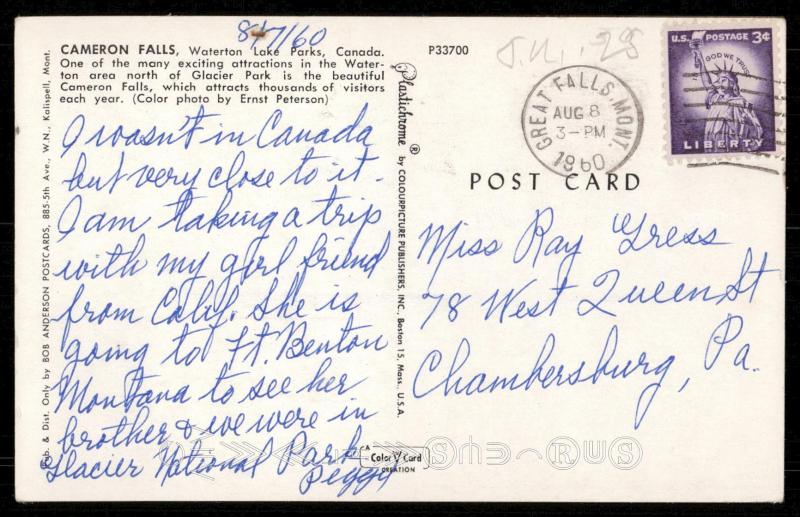 8/7/60
CAMERON FALLS, Waterton Lake Parks, Canada.
One of the many exciting attractions in the Water-
ton area north of Glacier Park is the beautiful
Cameron Falls, which attracts thousands of visitors
each year. (Color photo by Ernst Peterson)
I wasn't in Canada
but very close to it.
I am taking a trip
with my girl friend
from Calif. She is
going to Ft. Benton
Montana to see her
brother & we were in
Glacier National Park
Peggy
Pub. & Dist. Only by BOB ANDERSON POSTCARDS, 885-5th Ave., W.N., Kalispell, Mont.
Plastichrome ® by COLOURPICTURE PUBLISHERS, INC., Boston 15, Mass., U.S.A.
P33700
GREAT FALLS, MONT.
AUG 8
3-PM
1960
U.S. POSTAGE 3¢
IN GOD WE TRUST
LIBERTY
POST CARD
Miss Ray Gress
78 West Queen St
Chambersburg, Pa.
A
Color Card
CREATION